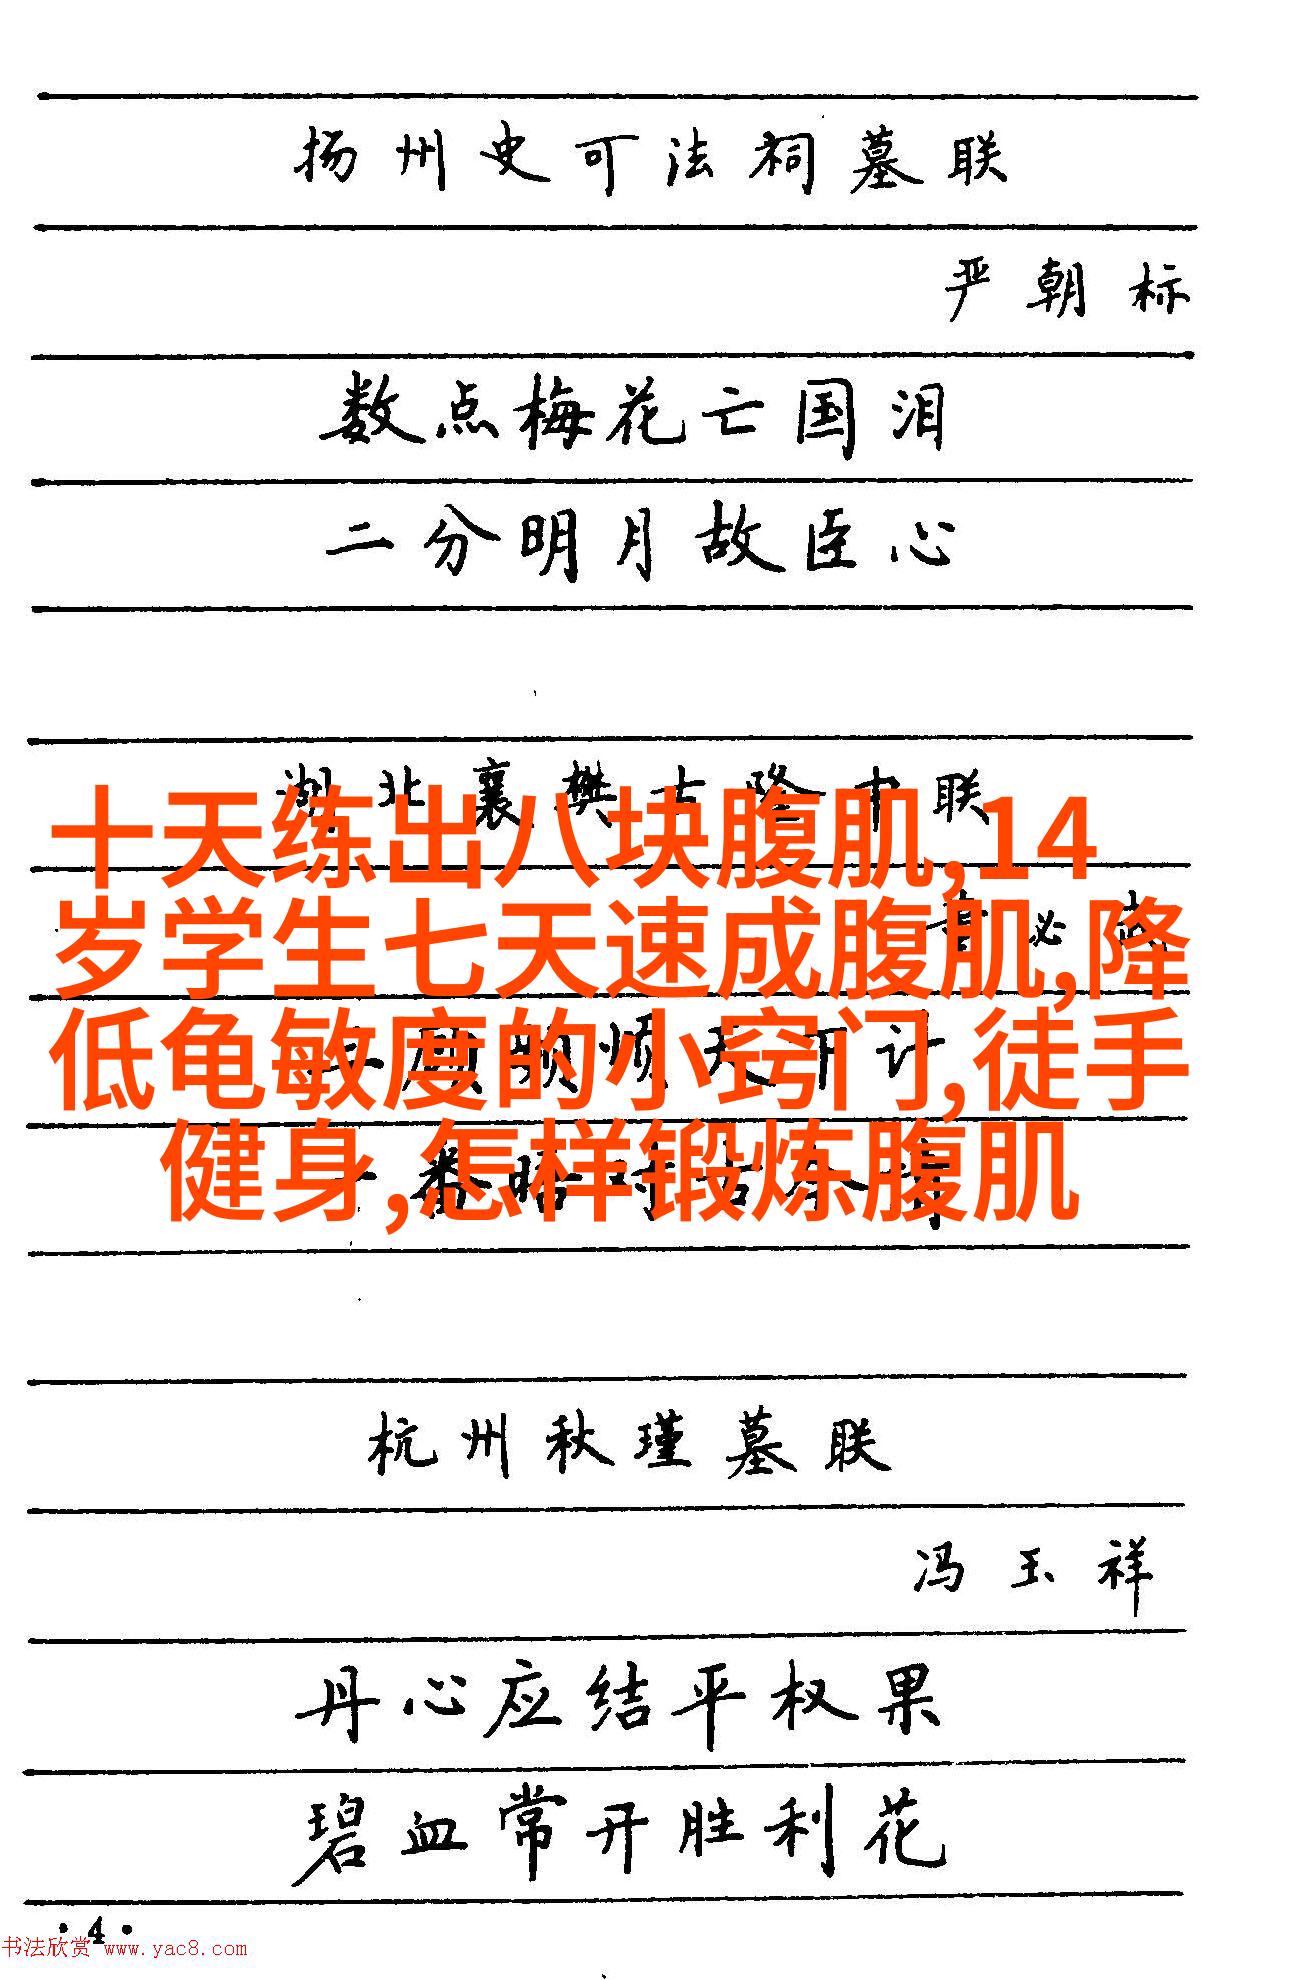 扬州史可法祠墓联
严朝标
数点梅花亡国泪
二分明月故臣心
湖北襄樊古隆中联
十天练出八块腹肌,14
岁学生七天速成腹肌,降
低龟敏度的小窍门,徒手
健身,怎样锻炼腹肌
三顾频烦天下计
一番晤对古今情
杭州秋瑾墓联
冯玉祥
丹心应结平权果
碧血常开胜利花
·4·
书法欣赏 www.yac8.com